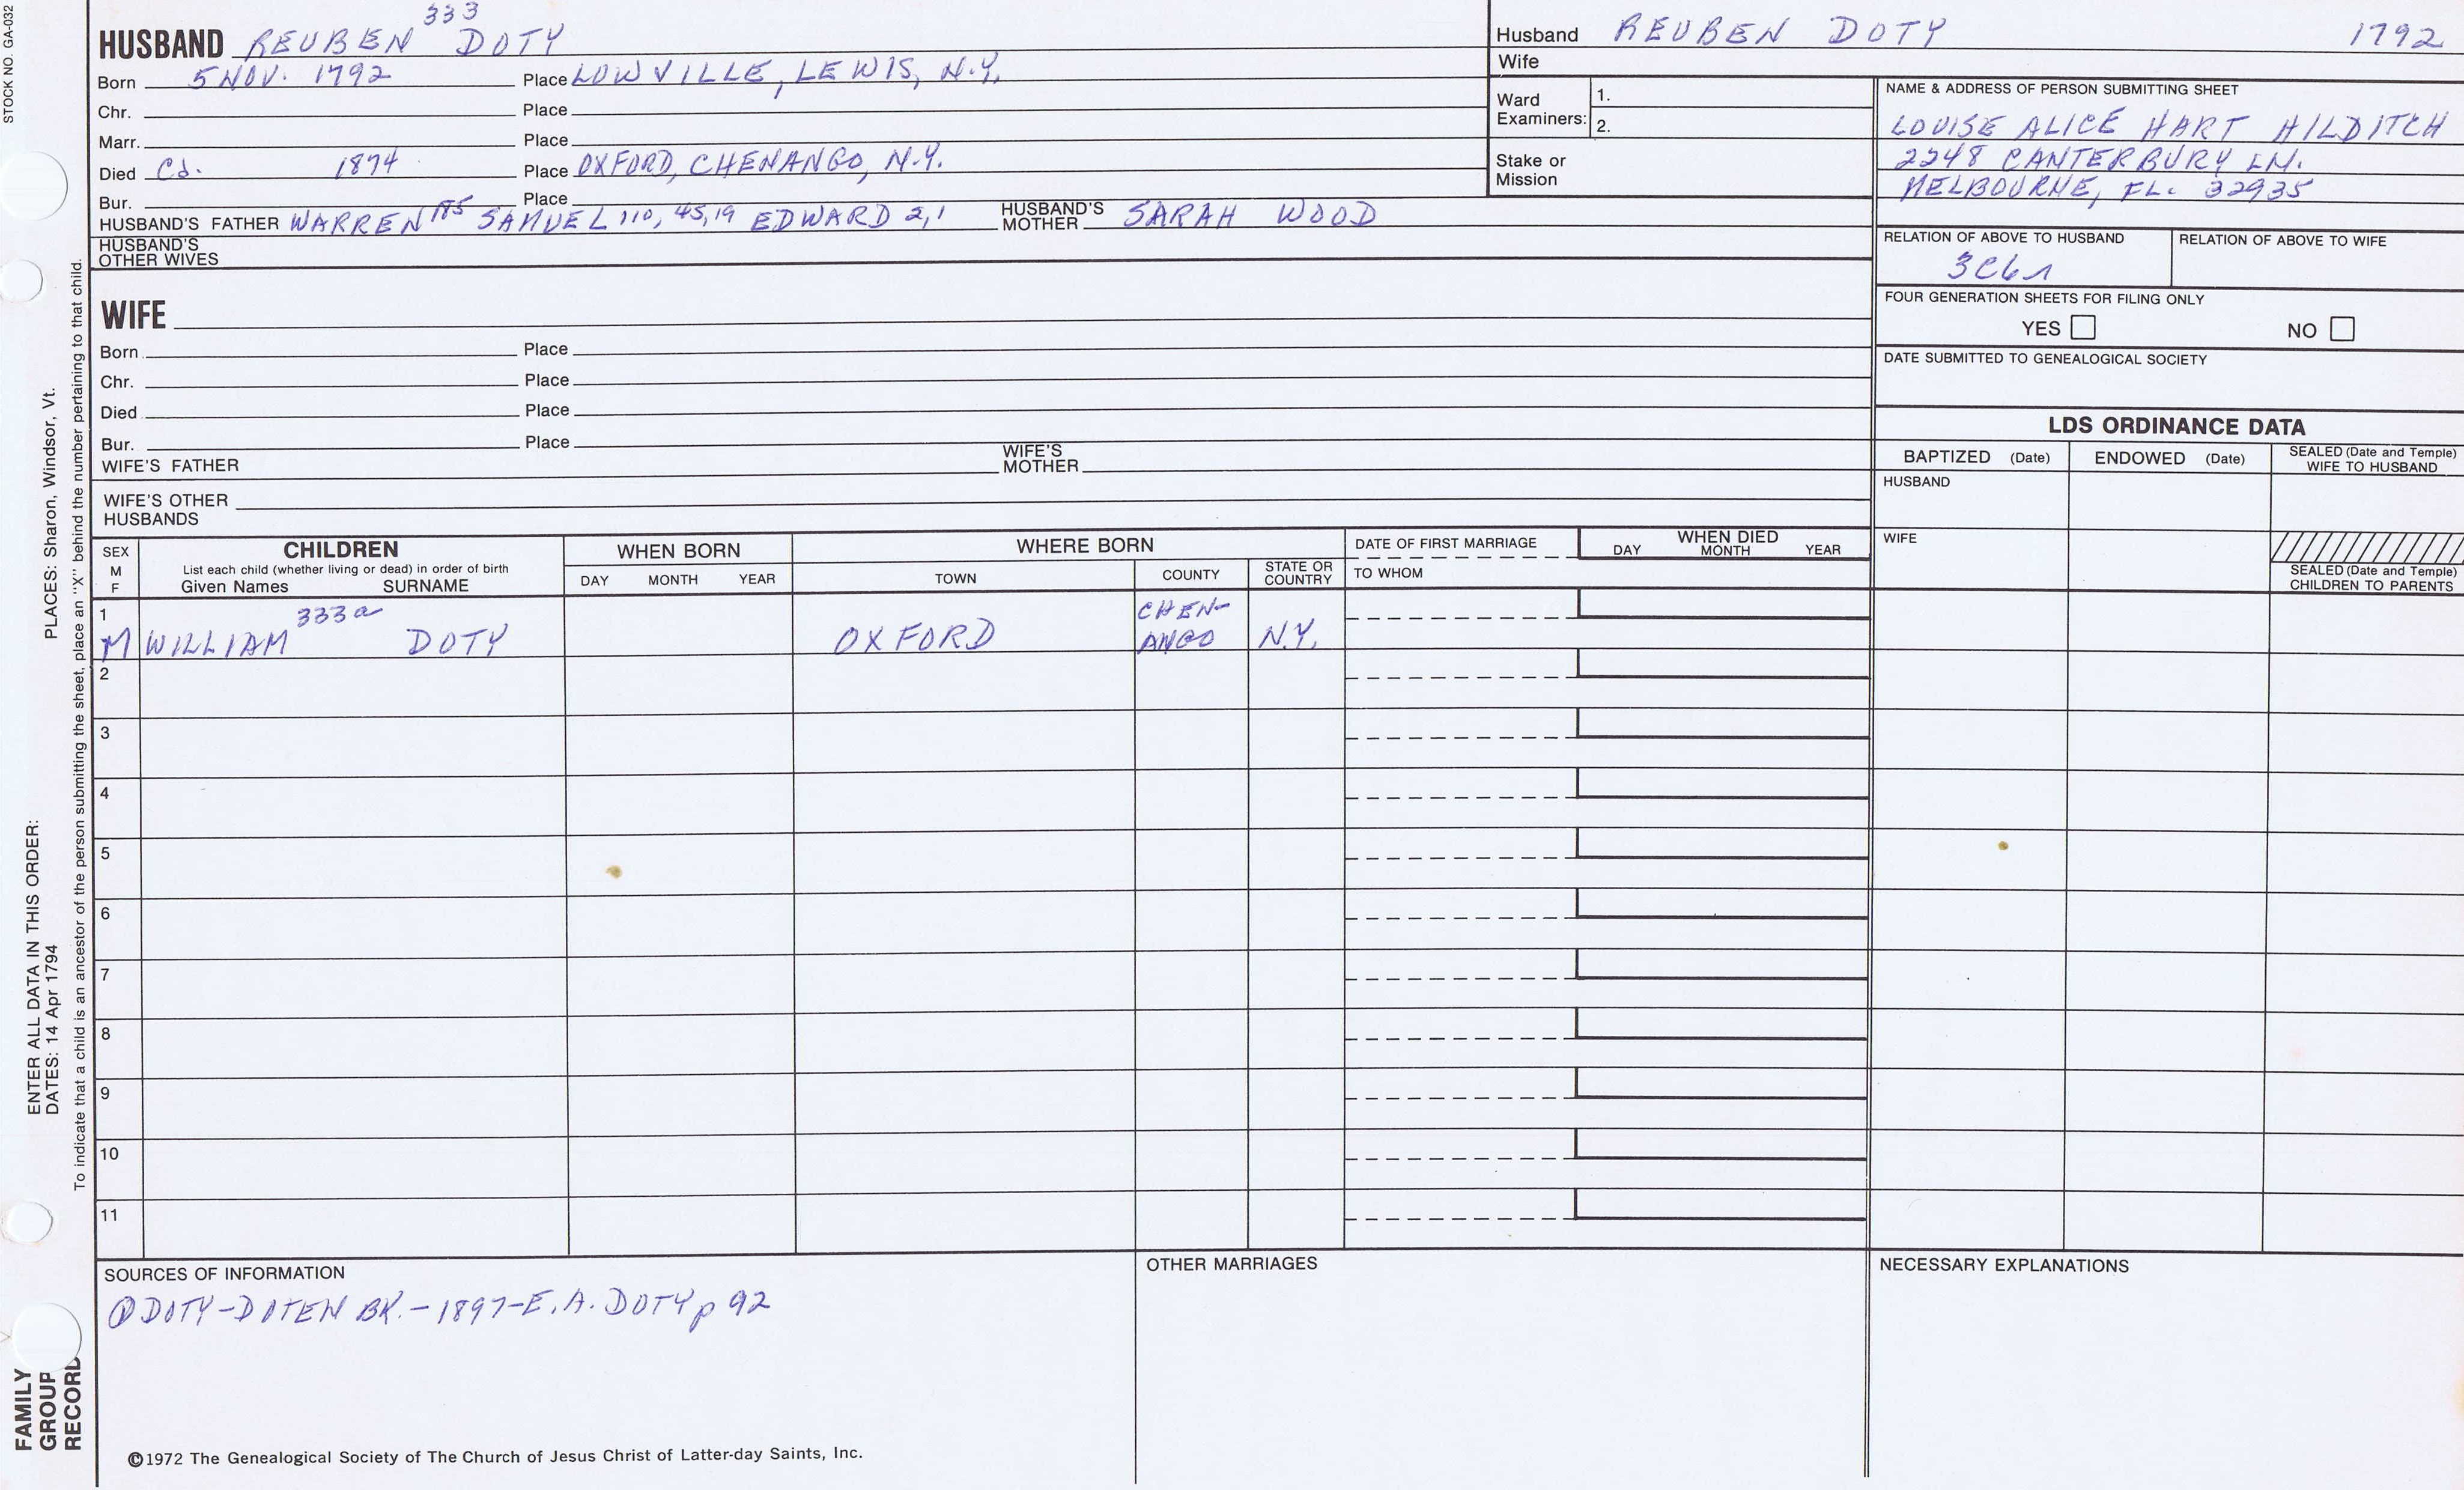 STOCK NO. GA-032
333
HUSBAND REUBEN DOTY
Born 5 NOV. 1792 Place LOWVILLE, LEWIS, N.Y.
Chr. Place
Marr. Place
Died Cd. 1874 Place OXFORD, CHENANGO, N.Y.
Bur. Place
HUSBAND'S FATHER WARREN 175 SAMUEL 110, 45, 19 EDWARD 2, 1 HUSBAND'S MOTHER SARAH WOOD
HUSBAND'S OTHER WIVES
Husband REUBEN DOTY 1792
Wife
Ward Examiners: 1.
2.
Stake or Mission
NAME & ADDRESS OF PERSON SUBMITTING SHEET
LOUISE ALICE HART HILDITCH
2248 CANTERBURY LN.
MELBOURNE, FL. 32935
RELATION OF ABOVE TO HUSBAND RELATION OF ABOVE TO WIFE
3C6r
FOUR GENERATION SHEETS FOR FILING ONLY
YES NO
DATE SUBMITTED TO GENEALOGICAL SOCIETY
WIFE
Born Place
Chr. Place
Died Place
Bur. Place
WIFE'S FATHER WIFE'S MOTHER
WIFE'S OTHER HUSBANDS
LDS ORDINANCE DATA
BAPTIZED (Date) ENDOWED (Date) SEALED (Date and Temple) WIFE TO HUSBAND
HUSBAND
WIFE
SEALED (Date and Temple) CHILDREN TO PARENTS
SEX M F
CHILDREN
List each child (whether living or dead) in order of birth
Given Names SURNAME
WHEN BORN
DAY MONTH YEAR
WHERE BORN
TOWN COUNTY STATE OR COUNTRY
DATE OF FIRST MARRIAGE
TO WHOM
WHEN DIED
DAY MONTH YEAR
1 333a CHEN-
M WILLIAM DOTY OXFORD ANGO N.Y.
2
3
4
5
6
7
8
9
10
11
SOURCES OF INFORMATION
① DOTY-DOTEN BK.-1897-E.A. DOTY p 92
OTHER MARRIAGES
NECESSARY EXPLANATIONS
©1972 The Genealogical Society of The Church of Jesus Christ of Latter-day Saints, Inc.
FAMILY GROUP RECORD
ENTER ALL DATA IN THIS ORDER:
DATES: 14 Apr 1794 PLACES: Sharon, Windsor, Vt.
To indicate that a child is an ancestor of the person submitting the sheet, place an "X" behind the number pertaining to that child.